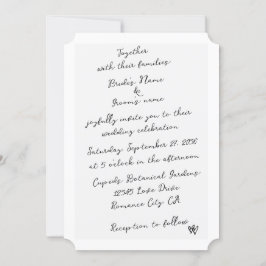 Together
with their families
Bride's Name
&
Grooms name
joyfully invite you to their
wedding celebration
Saturday, September 27, 2036
at 5 o'clock in the afternoon
Cupids Botanical Gardens
12345 Love Drive
Romance City CA
Reception to follow